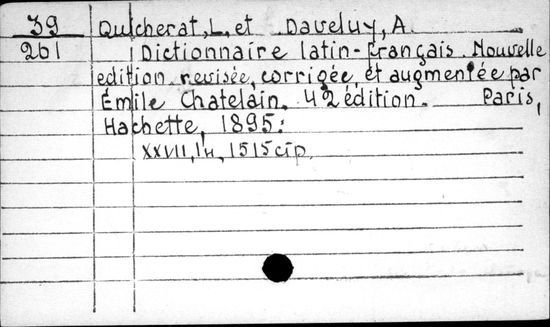 39 Quicherat, L. et Daveluy, A.
261 Dictionnaire latin-français. Nouvelle
edition revisée, corrigée et augmentée par
Émile Chatelain. 42 édition. Paris,
Hachette, 1895:
XXVII, 1 н, 1515 стр.